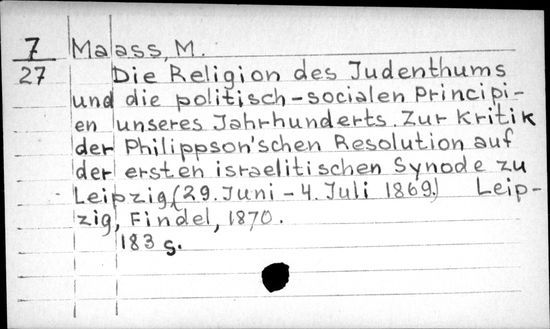 7 Maass, M.
27 Die Religion des Judenthums
und die politisch-socialen Principi-
en unseres Jahrhunderts. Zur Kritik
der Philippson'schen Resolution auf
der ersten israelitischen Synode zu
Leipzig, (29. Juni - 4. Juli 1869.) Leip-
zig, Findel, 1870.
183 s.